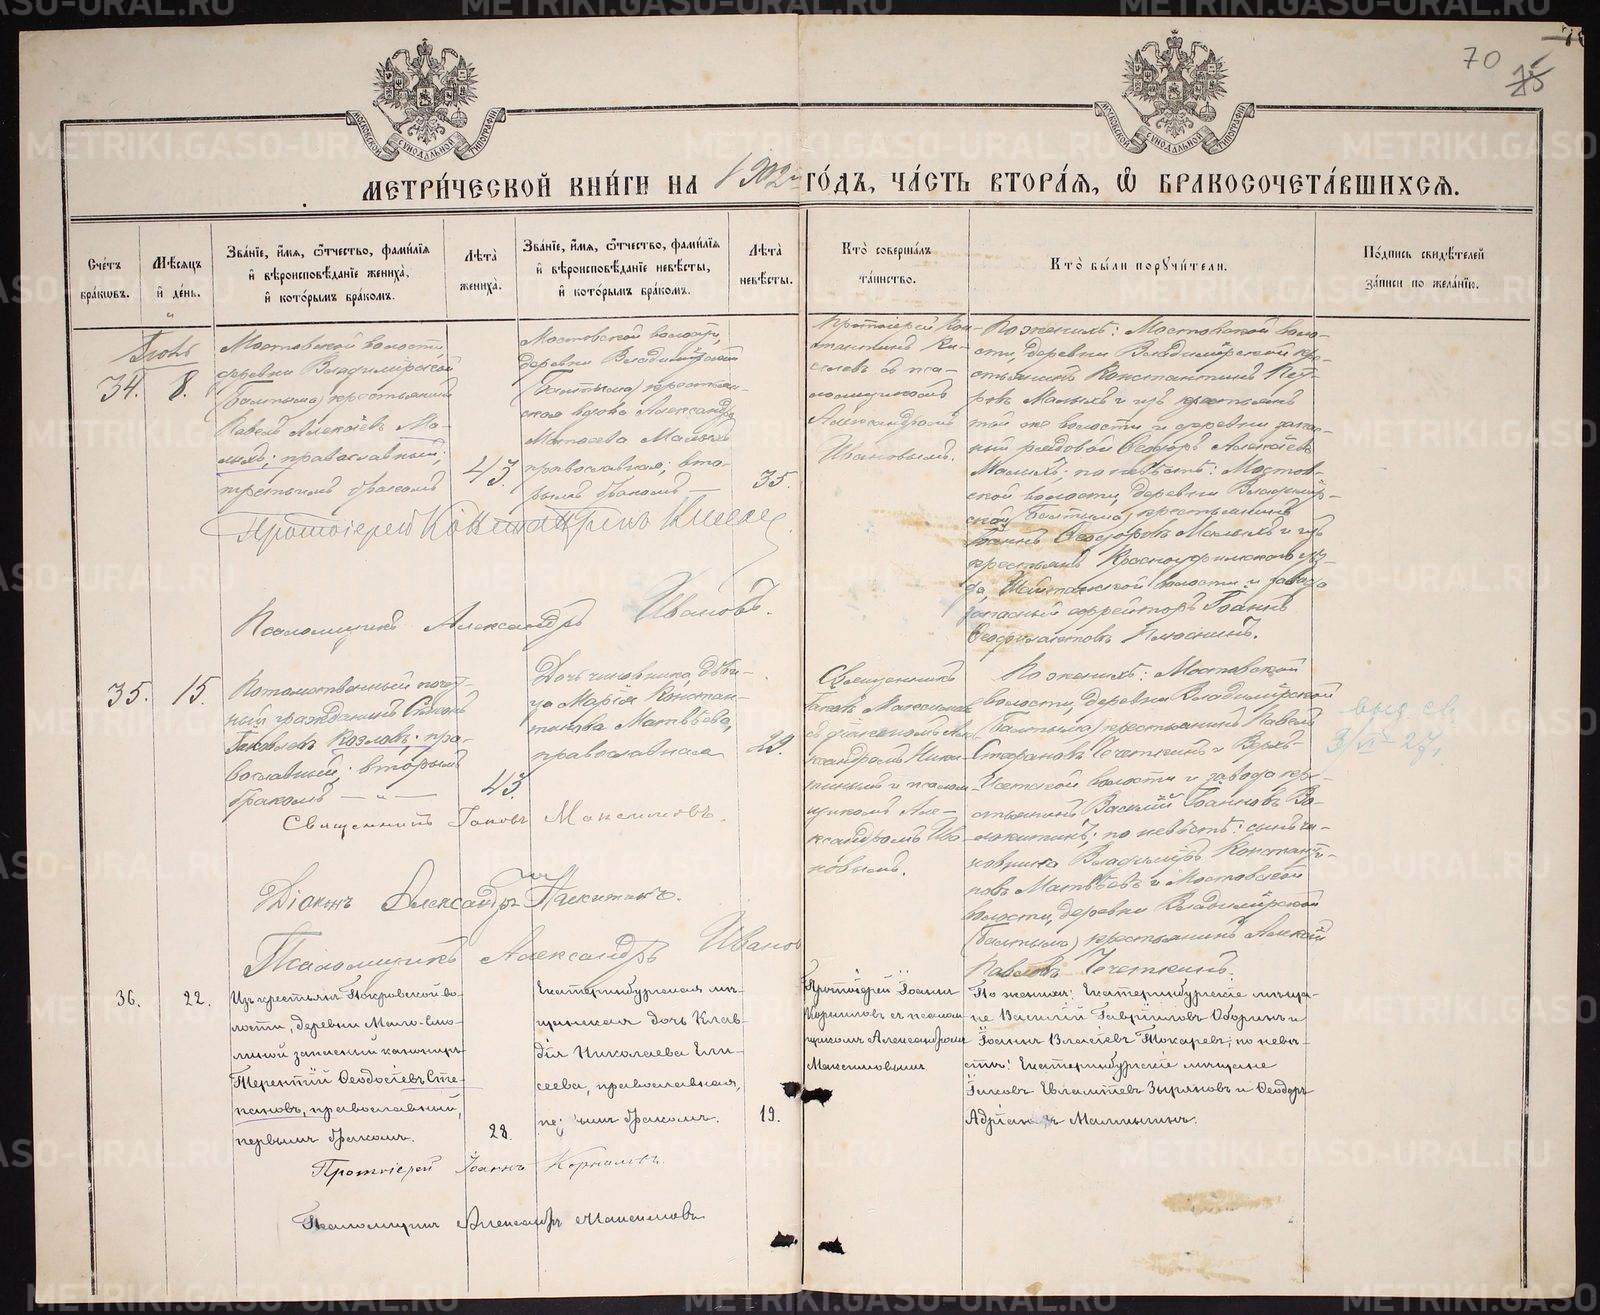 70
МЕТРИ́ЧЕСКОЙ КНИ́ГИ НА 1902й ГО́ДЪ, ЧА́СТЬ ВТОРА́Я, Ѿ БРАКОСОЧЕТА́ВШИХСЯ.
Сче́тъ бра́ковъ.
Мѣ́сяцъ и҆ де́нь.
Зва́нїе, и҆́мя, ѻ҆́тчество, фами́лїя
и҆ вѣроисповѣ́данїе жениха̀,
и҆ кото́рымъ бра́комъ.
Лѣта̀ жениха̀.
Зва́нїе, и҆́мя, ѻ҆́тчество, фами́лїя
и҆ вѣроисповѣ́данїе невѣ́сты,
и҆ кото́рымъ бра́комъ.
Лѣта̀ невѣ́сты.
Кто̀ соверша́лъ
та́инство.
Кто̀ бы́ли поручи́тели.
По́дпись свидѣ́телей
за́писи по жела́нїю.
Іюнь
34.
8.
Мостовской волости,
деревни Владимірской
(Балтыма) крестьянинъ
Павелъ Алексіевъ Ма-
лыхъ; православный;
третьимъ бракомъ
43.
Мостовской волости,
деревни Владимірской
(Балтыма) крестьян-
ская вдова Александра
Матѳеева Малыхъ
православная; вто-
рымъ бракомъ
35.
Протоіерей Кон-
стантинъ Ки-
селевъ съ пса-
ломщикомъ
Александромъ
Ивановымъ.
По женихѣ: Мостовской воло-
сти, деревни Владимірской кре-
стьянинъ Константинъ Пет-
ровъ Малыхъ и изъ крестьянъ
той же волости и деревни запас-
ный рядовой Ѳеодоръ Алексіевъ
Малыхъ; по невѣстѣ: Мостов-
ской волости, деревни Владимір-
ской (Балтыма) крестьянинъ
Іоаннъ Ѳеодоровъ Малыхъ и изъ
крестьянъ Красноуфимскаго уѣз-
да, Шайтанской волости и завода
запасный ефрейторъ Іоаннъ
Ѳеофилактовъ Плюснинъ.
Протоіерей Константинъ Киселев
Псаломщикъ Александръ Ивановъ.
35.
15.
Потомственный поче-
тный гражданинъ Симеонъ
Іаковлевъ Козловъ; пра-
вославный; вторымъ
бракомъ — „ —
43.
Дочь чиновника, дѣви-
ца Марія Констан-
тинова Матвѣева,
православная
29.
Священникъ
Іаковъ Максимовъ
съ діакономъ Але-
ксандромъ Ники-
тинымъ и псалом-
щикомъ Але-
ксандромъ Ива-
новымъ.
По женихѣ: Мостовской
волости, деревни Владимірской
(Балтыма) крестьянинъ Павелъ
Стефановъ Чечеткинъ и Верхъ-
Исетской волости и завода кре-
стьянинъ Василій Іоанновъ Во-
локитинъ; по невѣстѣ: сынъ чи-
новника Владиміръ Константи-
новъ Матвѣевъ и Мостовской
волости, деревни Владимірской
(Балтыма) крестьянинъ Алексій
Павловъ Чечеткинъ.
выд. св.
3/VI 27.
Священникъ Іаковъ Максимовъ.
Діаконъ Александръ Никитинъ.
Псаломщикъ Александръ Иванов
36.
22.
Изъ крестьянъ Покровской во-
лости, деревни Мало-Смо-
линой запасный канониръ
Терентій Ѳеодосіевъ Сте-
пановъ, православный,
первымъ бракомъ.
28.
Екатеринбургская мѣ-
щанская дочь Клав-
дія Николаева Ели-
сеева, православная,
пер вымъ бракомъ.
19.
Протоіерей Іоаннъ
Корниловъ съ псалом-
щикомъ Александромъ
Максимовымъ
По женихѣ: Екатеринбургскіе мѣща-
не Василій Гавріиловъ Оборинъ и
Іоаннъ Власіевъ Токаревъ; по невѣ-
стѣ: Екатеринбургскіе мѣщане
Іаковъ Евлампіевъ Зыряновъ и Ѳеодоръ
Адріановъ Малыгинъ.
Протоіерей Іоаннъ Корниловъ.
Псаломщикъ Александръ Максимовъ
METRIKI.GASO-URAL.RU